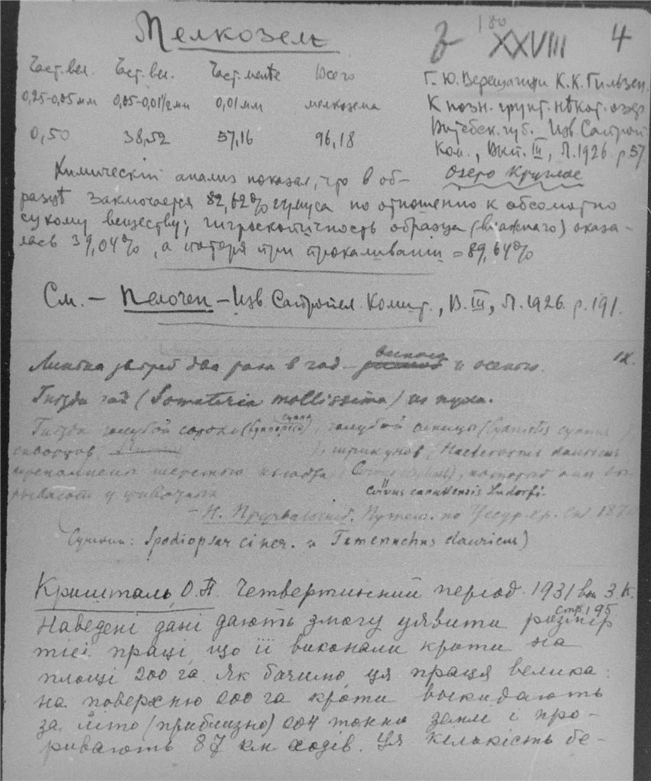 Мелкозем
180
XXVIII 4
Част. вел. Част. вел. Част. менѣе Всего
0,25-0,05 мм 0,05-0,01 мм 0,01 мм мелкозема
0,50 38,52 57,16 96,18
Г. Ю. Верещагин и К. К. Гильзен.
К позн. грунт. нѣкот. озер
Витебск. губ. Изв. Сапроп.
Ком., Вып. III, Л. 1926 p. 57
Озеро Круглое
Химическій анализ показал, что в об-
разцѣ заключается 82,62% гумуса по отношению к абсолютно
сухому веществу; гигроскопичность образца (влажного) оказа-
лась 39,04%, а потеря при прокаливании = 89,64%
См. – Пелоген – Изв. Сапропел. Комит., В. III, Л. 1926 p. 191.
IX.
Линька зверей два раза в год – весною и осенью.
Гнезда гаг (Somateria mollissima) из пуха.
Гнезда голубой сороки (Cyanopica cyana), голубой синицы (Cyanistes cyanus)
скворцов
шерстью
Cervus canadensis Lüdorfi.
– Н. Пржевальский. Путеш. по Уссур. кр. 1870
Spodiopsar ciner. и Temenuchus dauricus)
Кришталь, О. П. Четвертинний період. 1931 вип 3 К.
стр. 195
Наведені дані дають змогу уявити розмір
тієї праці що її виконали кроти на
площі 200 га. Як бачимо, ця праця велика:
на поверхню 200 га кроти викидають
за літо (приблизно) 204 тонни землі і про-
ривають 87 км ходів. Ця кількість бе-